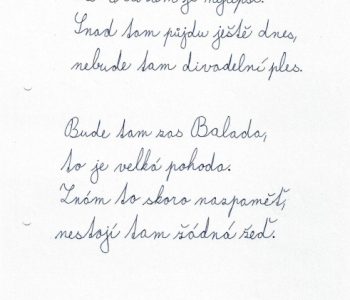 je nejlepší.
Snad tam půjdu ještě dnes,
nebude tam divadelní ples.
Bude tam zas Balada,
to je velká pohoda.
Znám to skoro nazpaměť,
nestojí tam žádná žeď.